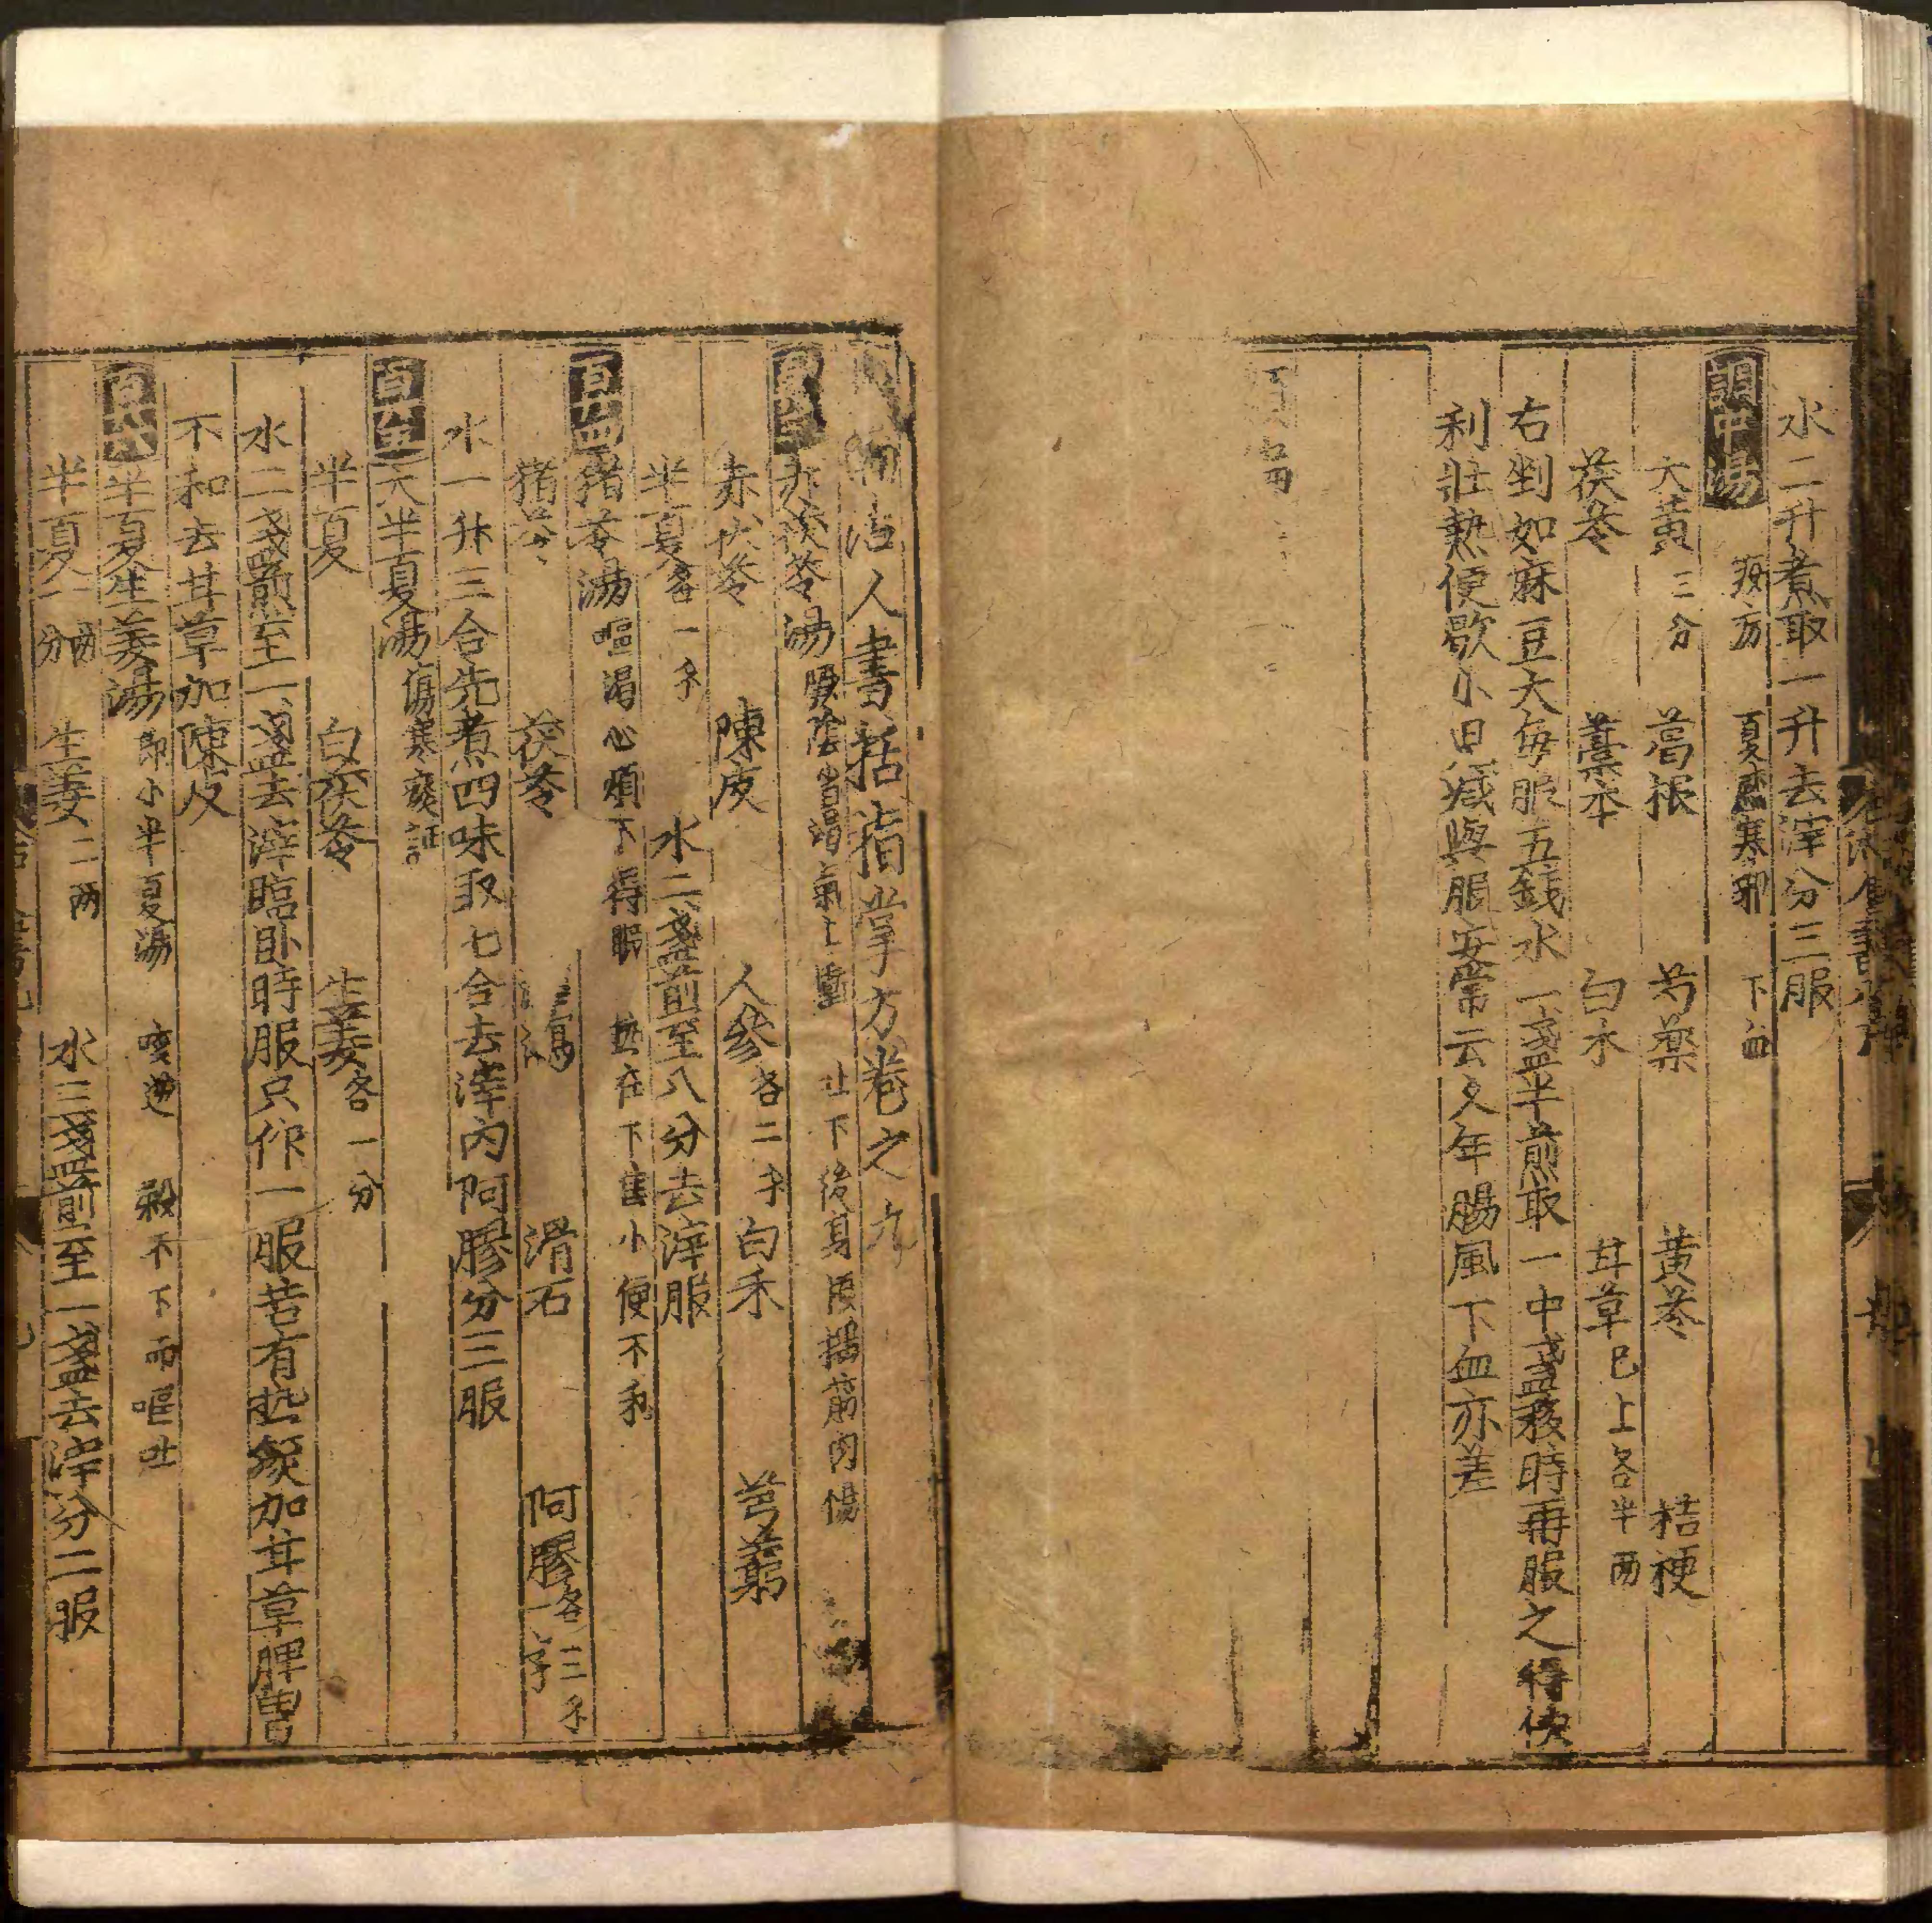 水二升煮取一升去滓分三服
調中湯 夏感寒邪 下血
大黄三分 葛根 芍藥 黄芩 桔梗
茯苓 藁本 白朮 甘草巳上各半两
右剉如麻豆大每服五錢水一盞半煎取一中盞移時再服之得快
利壯熱便歇小 减與服安常云久年腸風下血亦差
活人書括指掌方卷之九
赤茯苓湯 厥陰消渴氣上 吐下後身 摇筋肉惕
赤伏苓 陳皮 人參各二 白术 芎藭
半夏各一 水二盞煎至八分去滓服
百四 猪苓湯 嘔渴心煩不得眠 热在下焦小便不利
猪苓 茯苓 澤瀉 滑石 阿膠各三
水一升三合先煮四味取七合去滓内阿膠分三服
百五 大半夏湯 傷寒痰証
半夏 白茯苓 生姜各一分
水二盞煎至一盞去滓臨卧時服只作一服若有热痰加甘草脾胃
不和去甘草加陳皮
百六 半夏生姜湯 即小半夏湯 噦逆 穀不下而嘔吐
半夏一两一分 生姜二两 水三盞煎至一盞去滓分二服